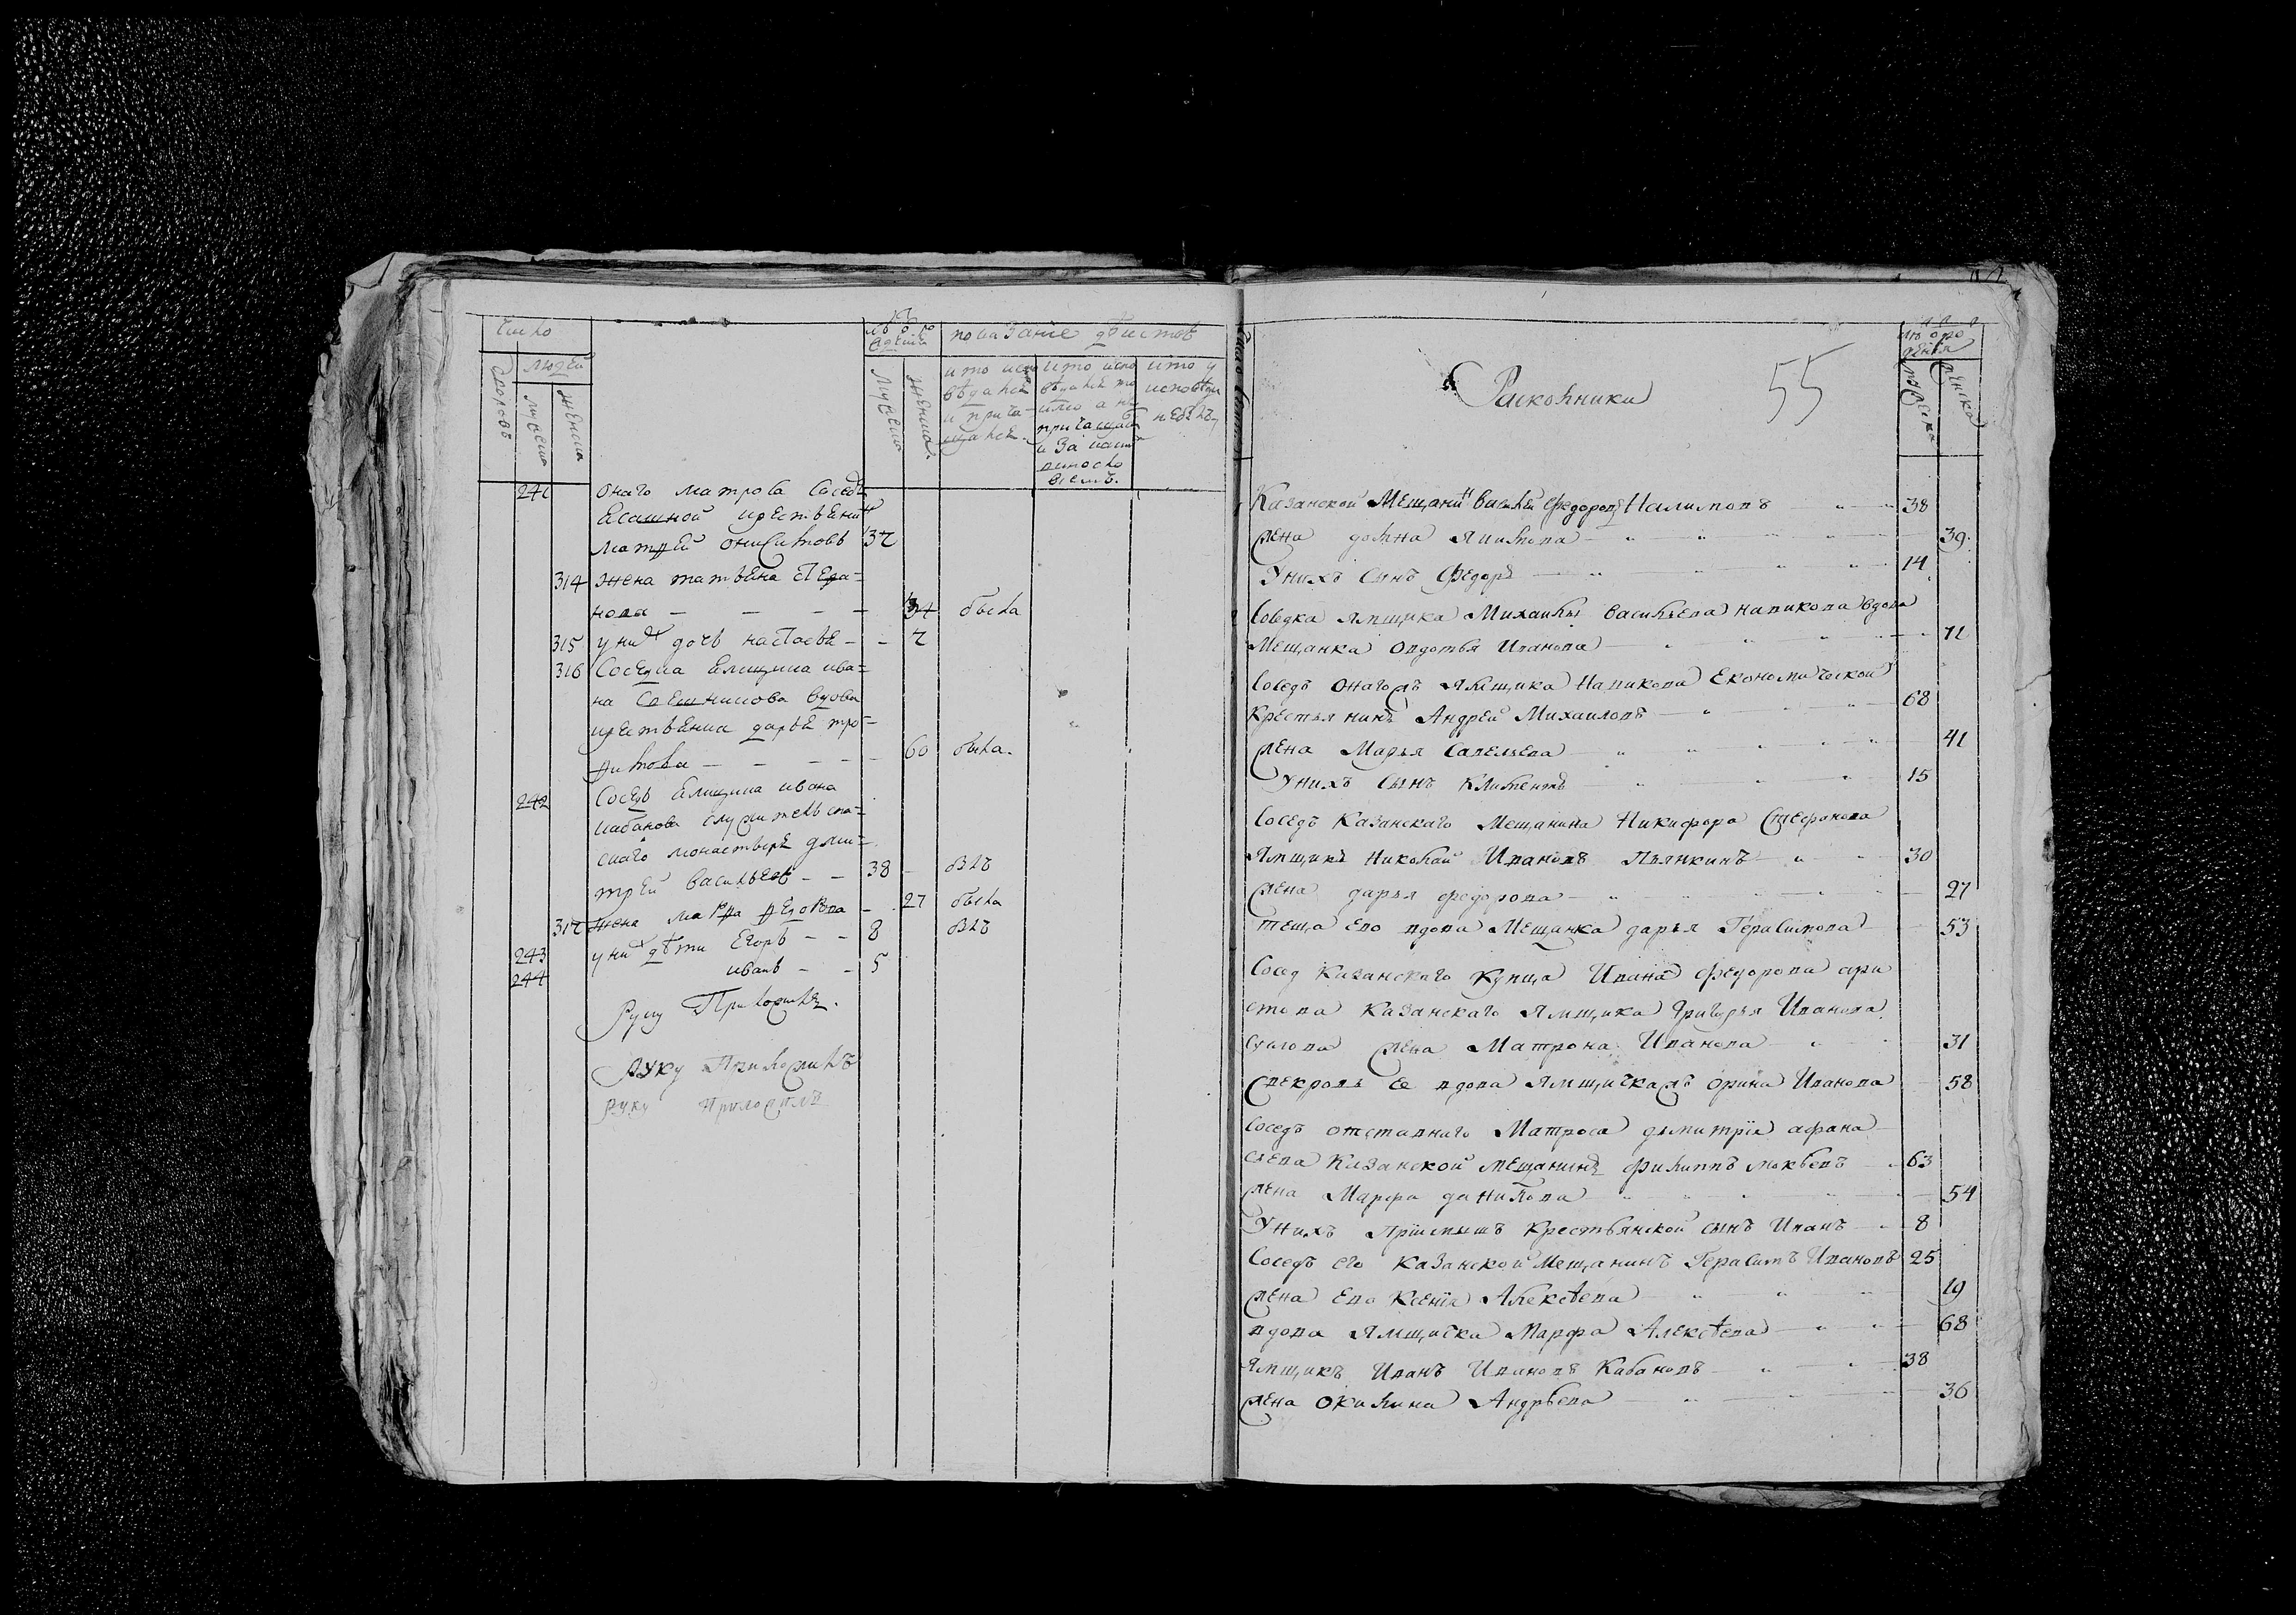 число
людей
дворовъ
мужеска
женска
лѣто рож
дения
мужеска
женска
показание дѣистов
кто испо
вѣдался
и прича-
щался.
кто испо
вѣдался то
лько а не
причащал
и за каки
виносло
виемъ.
кто у
исповѣди
небылъ
241 онаго матроса сосед
Ясашной крестьянин
матвей онисимовъ 37
314 жена татьяна степа=
нова — — — — 34 была
315 у них дочь настасья — - 7
316 Соседка ямщика ива=
на вдова
крестьянка дарья тро=
фимова — — — — 60 была.
242 Сосед ямщика ивана
кабанова служитель спа=
скаго монастыря дми=
трей васильев - — 38 - былъ
317 жена марфа федорова - 27 была
243 у них дѣти Егоръ - - 8 былъ
244 иванъ - - 5
Руку Приложилъ.
Руку Приложилъ
Руку Приложилъ
Расколники
55
лѣ о ро
дения
мужеска
женска
Казанской Мещанин Василей Федоровъ Налимовъ 38
жена домна Якимова 39.
У нихъ Сынъ Федоръ 14
Соседка ямщика Михаилы Васильева Напикова вдова
Мещанка Овдотья Иванова 71
Соседъ онагожъ Ямщика Напикова Економической
Крестьянинъ Андрей Михаиловъ 68
жена Марья Савельева 41
У нихъ Сынъ Климентъ 15
Соседъ Казанскаго Мещанина Никифора Стефанова
Ямщикъ Николай Ивановъ Пьянкинъ 30
жена дарья федорова 27
теща Ево вдова Мещанка дарья Герасимова 53
Сосед Казанскаго Купца Ивана Федорова ари
стова Казанскаго Ямщика Григорья Иванова
жена Матрона Иванова 31
Свекровь Ее вдова Ямщичкажъ Орина Иванова 58
Соседъ отставнаго Матроса димитрїя афана
сьева Казанской мещанинъ филиппъ 63
жена Марфа данилова 54
У нихъ Прїемышъ Крестьянской сынъ Иванъ 8
Соседъ Его Казанской Мещанинъ Герасимъ Ивановъ 25
жена Ево Ксенїя Алексѣева 19
вдова Ямщичка Марфа Алексѣева 68
Ямщикъ Иванъ Ивановъ Кабановъ 38
жена Окилина Андрѣева 36